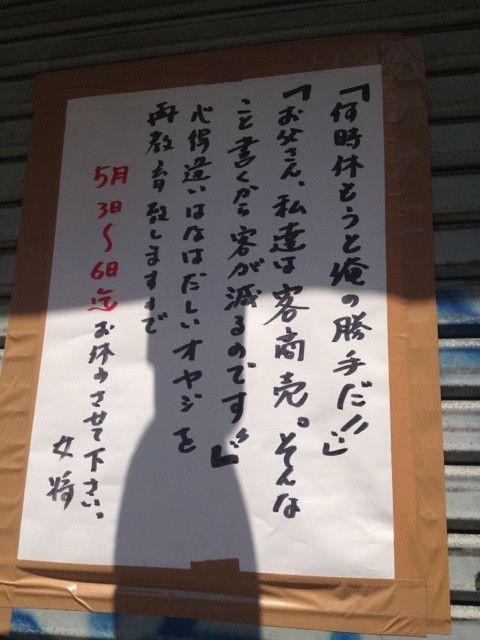 「何時休もうと俺の勝手だ!!」
「お父さん、私達は客商売。そんな
こと書くから客が減るのです!!」
心得違いはなはだしいオヤジを
再教育致しますので
5月3日〜6日迄お休みさせて下さい。
女将